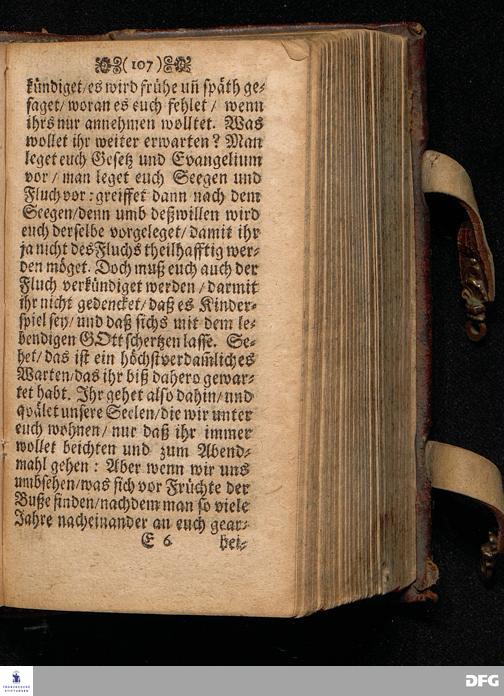 (107)
kündiget/es wird frühe uñ späth ge-
saget/ woran es euch fehlet / wenn
ihrs nur annehmen wolltet. Was
wollet ihr weiter erwarten? Man
leget euch Gesetz und Evangelium
vor / man leget euch Seegen und
Fluch vor: greiffet dann nach dem
Seegen/denn umb deßwillen wird
euch derselbe vorgeleget/damit ihr
ja nicht des Fluchs theilhafftig wer-
den möget. Doch muß euch auch der
Fluch verkündiget werden / darmit
ihr nicht gedencket/daß es Kinder-
spiel sey/und daß sichs mit dem le-
bendigen GOtt schertzen lasse. Se-
het/das ist ein höchstverdam̃liches
Warten/das ihr biß dahero gewar-
tet habt. Ihr gehet also dahin/und
qvälet unsere Seelen/die wir unter
euch wohnen/ nur daß ihr immer
wollet beichten und zum Abend-
mahl gehen: Aber wenn wir uns
umbsehen/was sich vor Früchte der
Buße finden/nachdem man so viele
Jahre nacheinander an euch gear-
E 6 bei-
FRANCKESCHE
STIFTUNGEN
DFG